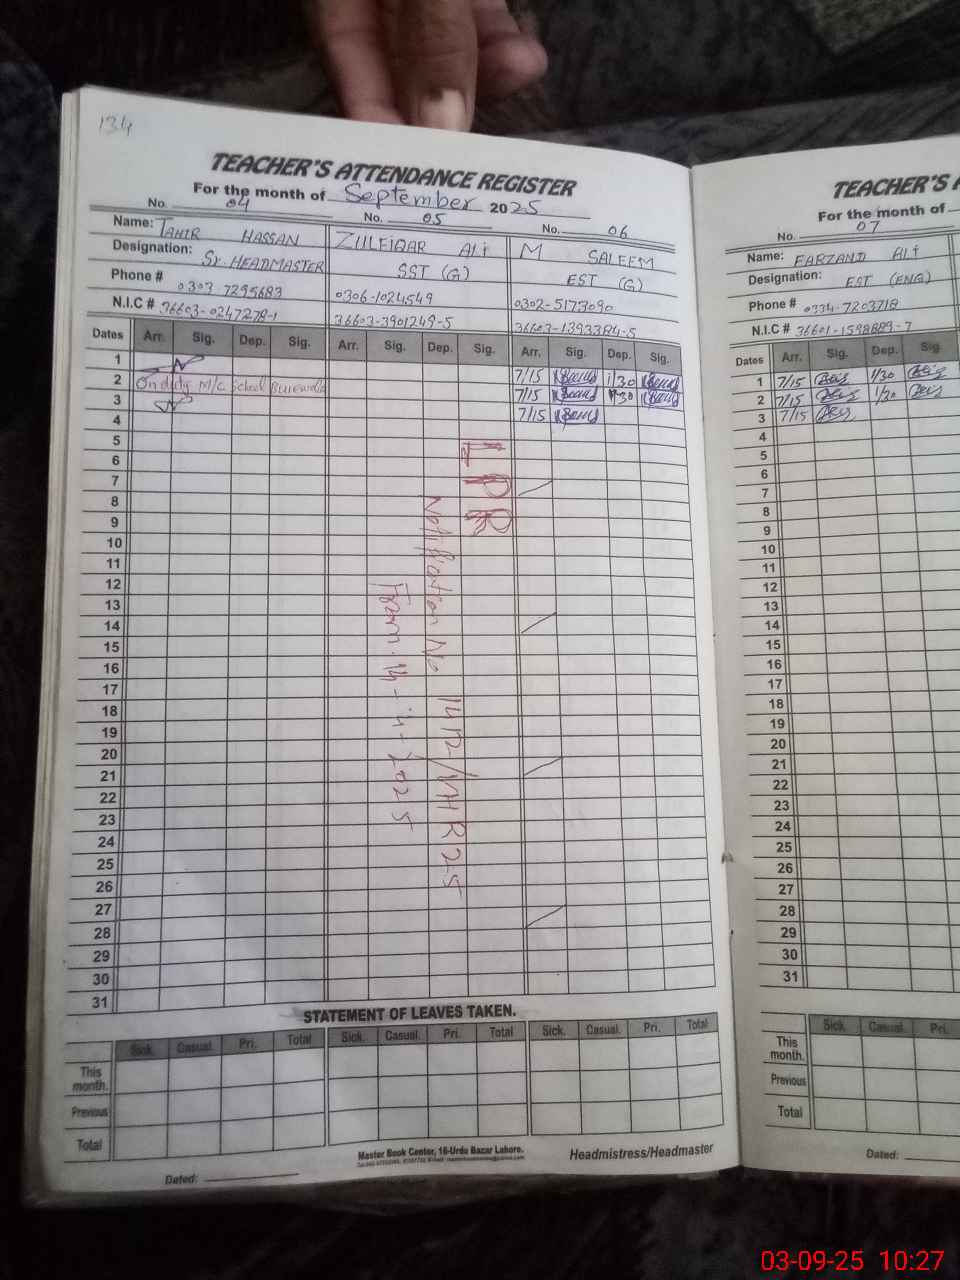 134
TEACHER'S ATTENDANCE REGISTER
For the month of September 2025
No. 04 No. 05 No. 06
Name: TAHIR HASSAN ZULFIQAR ALI M SALEEM
Designation: Sr. HEADMASTER SST (G) EST (G)
Phone # 0303-7295683 0306-1024549 0302-5173090
N.I.C # 36603-0247278-1 36603-3901249-5 36603-1393384-5
Dates Arr. Sig. Dep. Sig. Arr. Sig. Dep. Sig. Arr. Sig. Dep. Sig.
1 7/15 1/30
2 On duty M/C School Burewala 7/15 1/30
3 7/15
4
5
6
7
8
9
10
11
12
13
14
15
16
17
18
19
20
21
22
23
24
25
26
27
28
29
30
31
LPR
Notification No 1412/VHR25
From 14-4-2025
STATEMENT OF LEAVES TAKEN.
Sick. Casual. Pri. Total Sick. Casual. Pri. Total Sick. Casual. Pri. Total
This month.
Previous
Total
Master Book Center, 16-Urdu Bazar Lahore.
Headmistress/Headmaster
Dated:
TEACHER'S A
For the month of
No. 07
Name: FARZAND ALI
Designation: EST (ENG)
Phone # 0334-7203718
N.I.C # 36601-1598889-7
Dates Arr. Sig. Dep. Sig.
1 7/15 1/30
2 7/15 1/30
3 7/15
4
5
6
7
8
9
10
11
12
13
14
15
16
17
18
19
20
21
22
23
24
25
26
27
28
29
30
31
Sick. Casual. Pri.
This month.
Previous
Total
Dated:
03-09-25 10:27